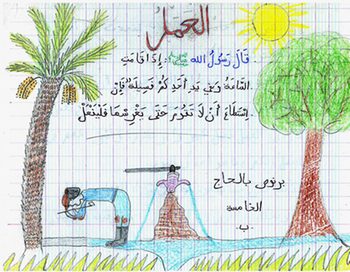 العمل
قَالَ رَسُولُ الله ﷺ: إِذَا قَامَتِ
السَّاعَةُ وَفِي يَدِ أَحَدِكُمْ فَسِيلَةً فَإِنْ
اِسْتَطَاعَ أَنْ لَا تَقُومَ حَتَّى يَغْرِسَهَا فَلْيَفْعَلْ
بالحاج
الخامسة
-ب-